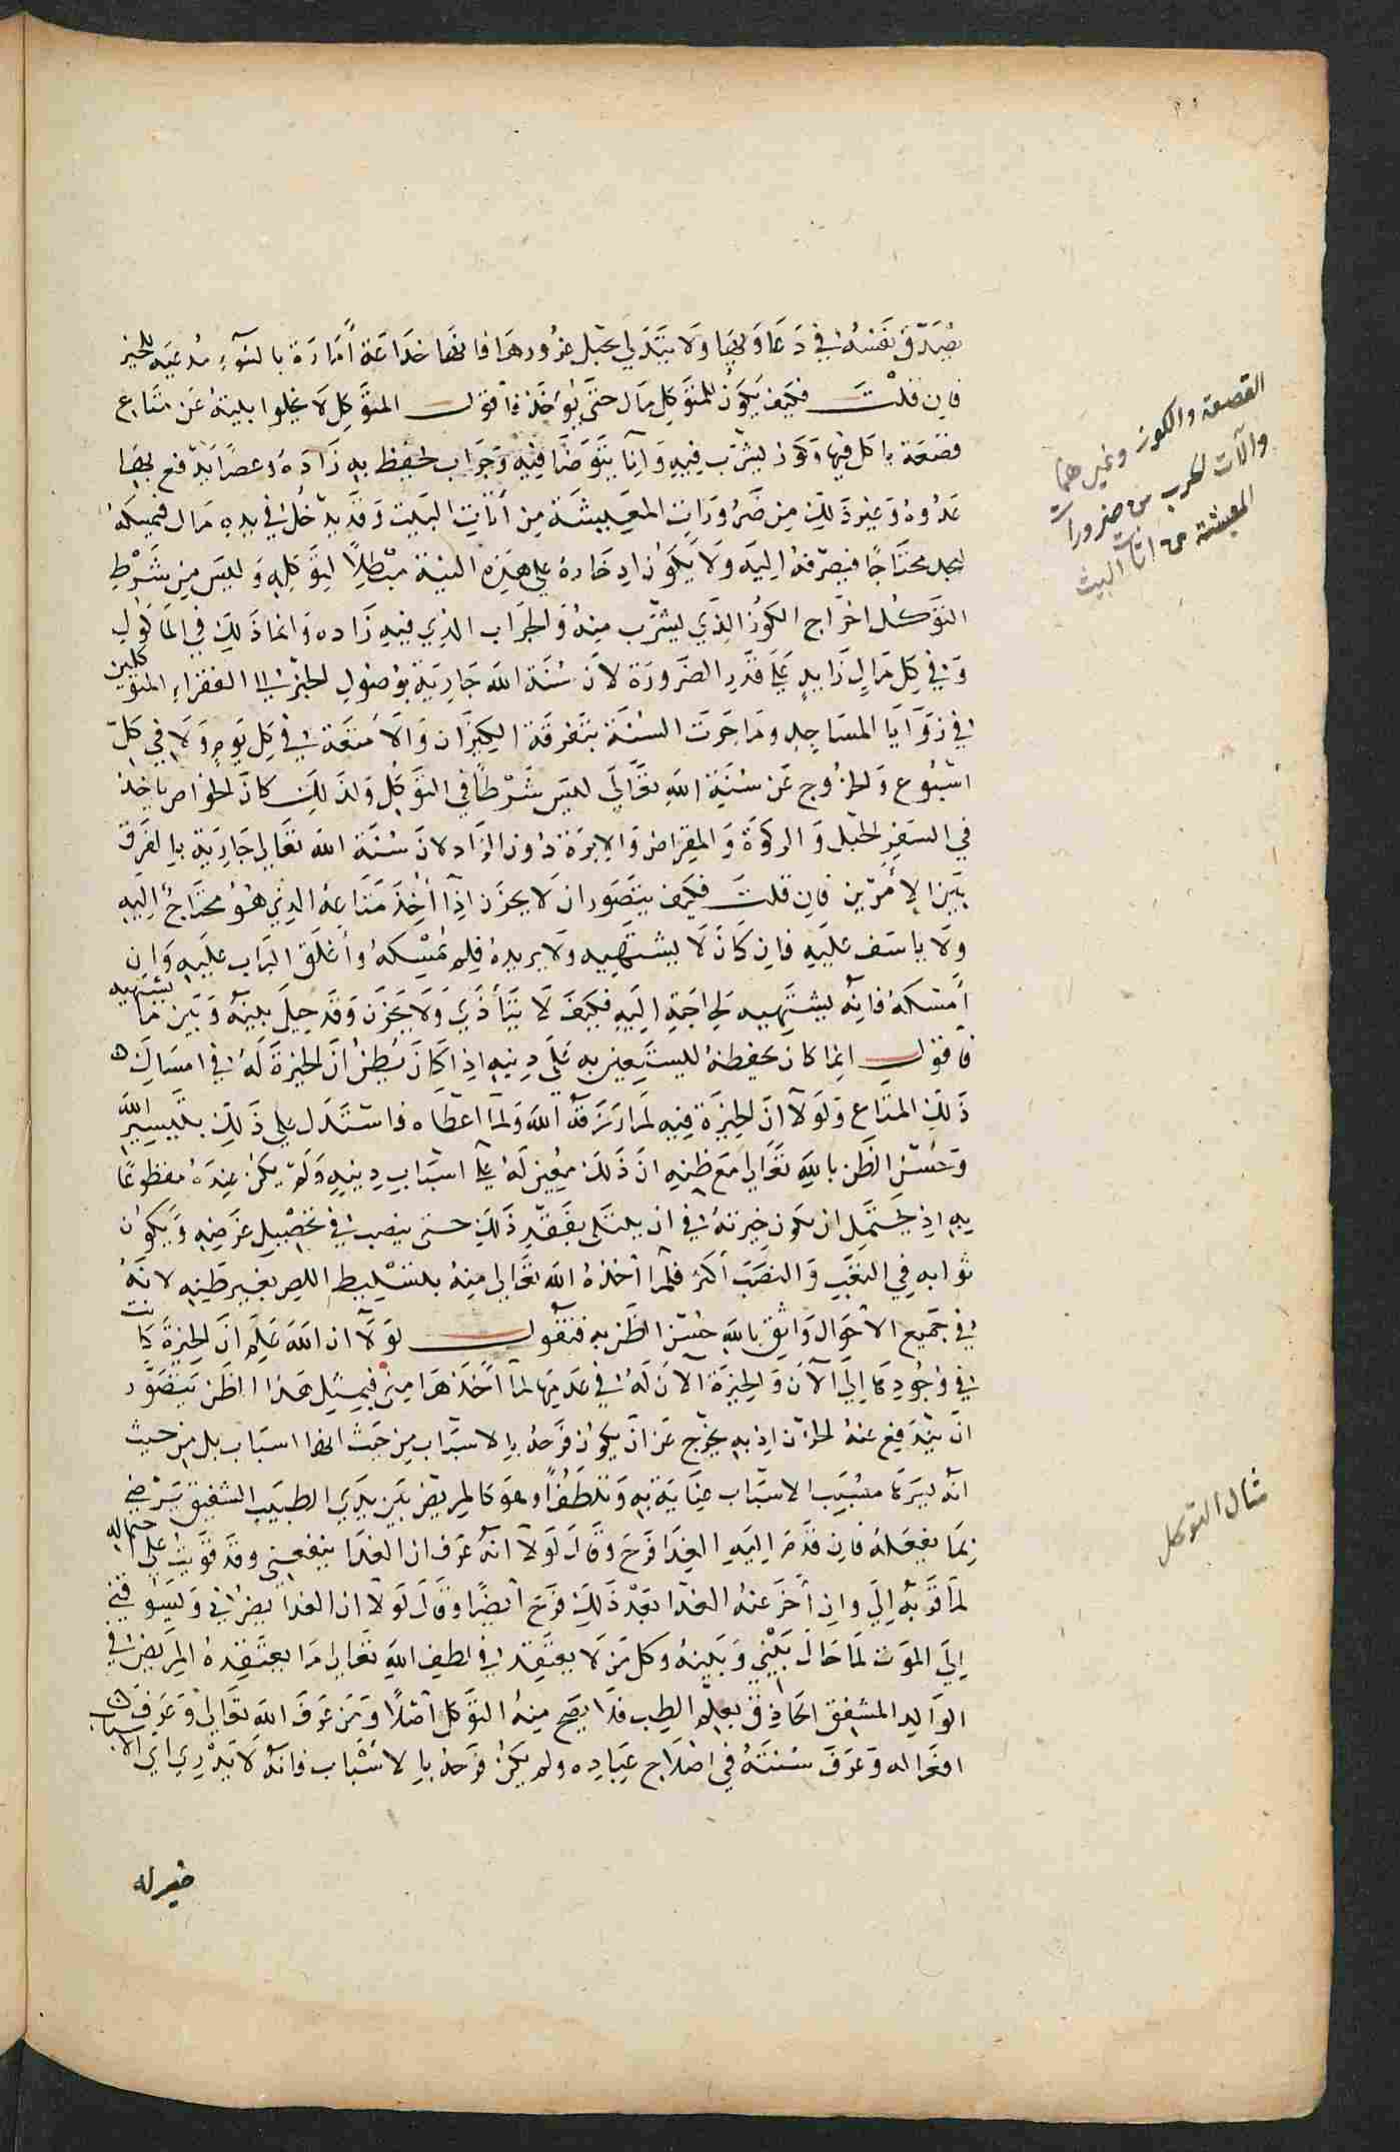 يصدق نفسه في دعاويها ولا يتدلى بحبل غرورها فانها خداعة امارة بالسوء مدعية للخير
فان قلت فكيف يكون للمتوكل مال حتى يؤاخذ فاقول المتوكل لا يخلوا بيته عن متاع
قصعة ياكل فيها وكوز يشرب فيه واناء يتوضا فيه وجراب يحفظ به زاده وعصا يدفع بها
عدوه وغير ذلك من ضرورات المعيشة من اثاث البيت وقد يدخل في يده مال فيمسكه
ليجد محتاجا فيصرفه اليه ولا يكون ادخاره على هذه النية مبطلا لتوكله وليس من شرط
التوكل اخراج الكوز الذي يشرب منه والجراب الذي فيه زاده وانما ذلك في الماكول
وفي كل مال زايد على قدر الضرورة لان سنة الله جارية بوصول الخبز الى الفقراء المتوكلين
في زوايا المساجد وما جرت السنة بتفرقة الكيزان والامتعة في كل يوم ولا في كل
اسبوع والخروج عن سنة الله تعالى ليس شرطا في التوكل ولذلك كان الخواص ياخذ
في السفر الحبل والركوة والمقراض والابرة دون الزاد لان سنة الله تعالى جارية بالفرق
بين الامرين فان قلت فكيف يتصور ان لا يحزن اذا اخذ متاعه الذي هو محتاج اليه
ولا ياسف عليه فان كان لا يشتهيه ولا يريده فلم يمسكه واغلق الباب عليه وان
امسكه فانه يشتهيه لحاجة اليه فكيف لا يتاذى ولا يحزن وقد حيل بينه وبين ما يشتهيه
فاقول انما كان يحفظه ليستعين به على دينه اذا كان يظن ان الخيرة له في امساك
ذلك المتاع ولولا ان الخيرة فيه لما رزقه الله ولما اعطاه فاستدل على ذلك بتيسير الله
وحسن الظن بالله تعالى مع ظنه ان ذلك معين له على اسباب دينه ولم يكن عنده مقطوعا
به اذ يحتمل ان يكون خيرته في ان يبتلى بفقد ذلك حتى ينصب في تحصيل غرضه ويكون
ثوابه في التعب والنصب اكثر فلما اخذه الله تعالى منه بتسليط اللص تغير ظنه لانه
في جميع الاحوال واثق بالله حسن الظن به فنقول لولا ان الله علم ان الخيرة كانت
في وجودها الى الآن والخيرة الآن له في عدمها لما اخذها مني فبمثل هذا الظن يتصور
ان يندفع عنه الحزن اذ به يخرج عن ان يكون فرحه بالاسباب من حيث انها اسباب بل من حيث
انه يسرها مسبب الاسباب عناية به وتلطفا وهو كالمريض بين يدي الطبيب الشفيق يرضى
بما يفعله فان قدم اليه الغدا فرح وقال لولا انه عرف ان الغدا ينفعني وقد قويت على احتماله
لما قربه الي وان اخر عنه الغدا بعد ذلك فرح ايضا وقال لولا ان الغدا يضرني ويسوقني
الى الموت لما حال بيني وبينه وكل من لا يعتقد في لطف الله تعالى ما يعتقده المريض في
الوالد المشفق الحاذق بعلم الطب فلا يصح منه التوكل اصلا ومن عرف الله تعالى وعرف
افعاله وعرف سنته في اصلاح عباده ولم يكن فرحه بالاسباب فانه لا يدري اي الاسباب
خير له
القصعة والكوز وغيرهما
والآلات الحرب من ضرورات
المعيشة من اثاث البيت
مثال التوكل